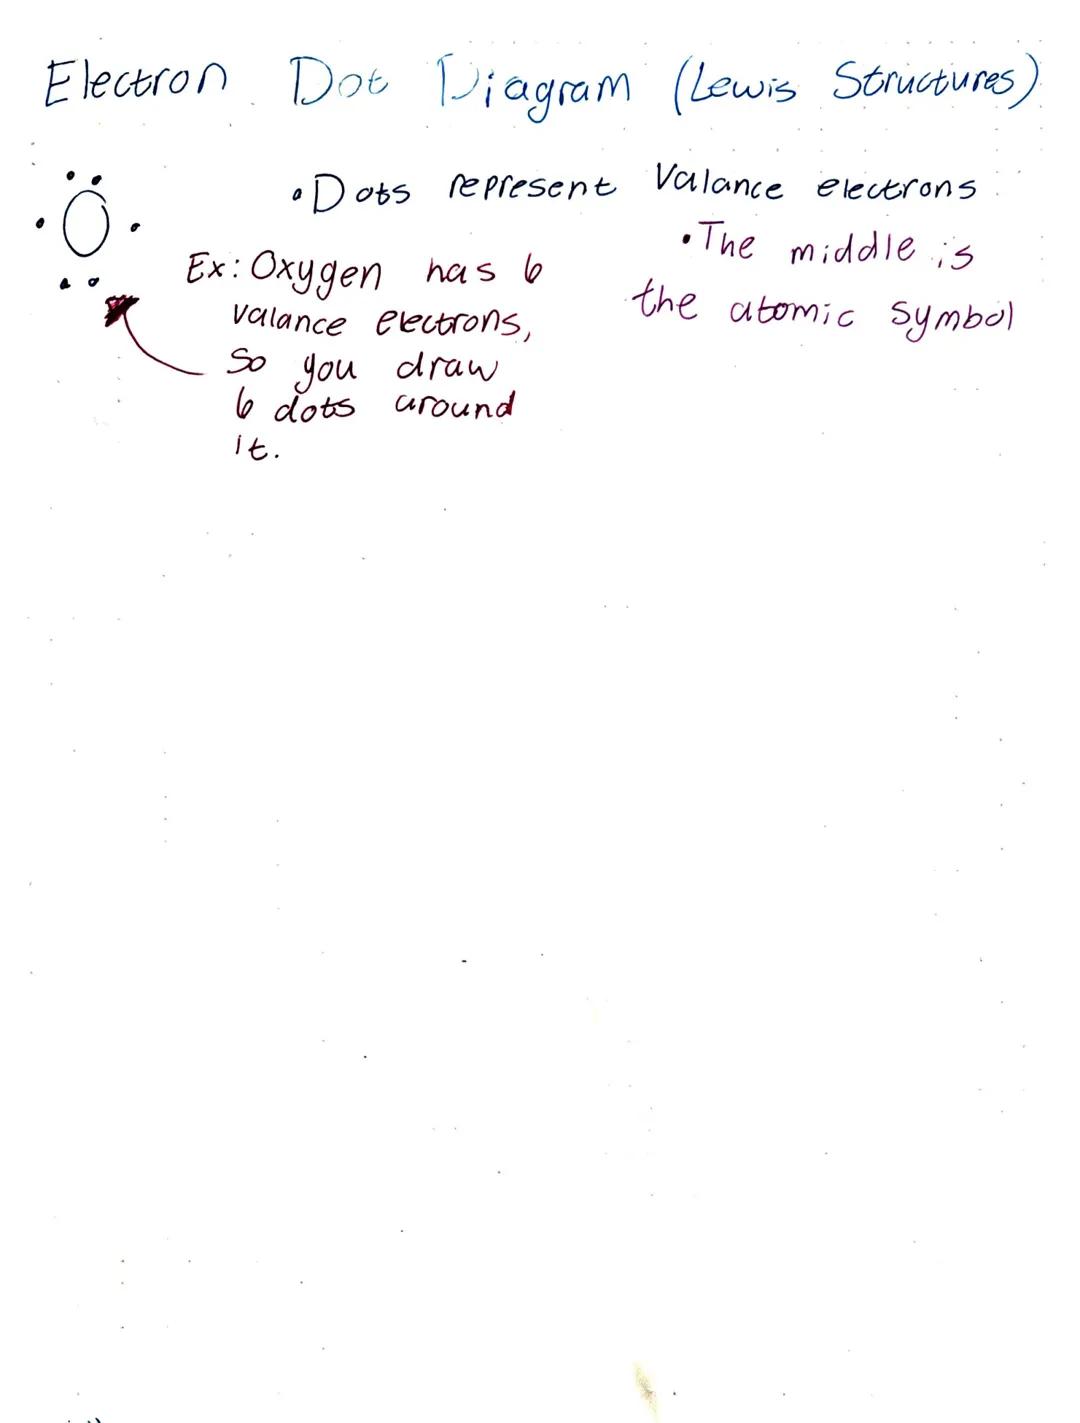 Electron Dot Diagram (Lewis Structures)
O
• Dots represent Valance electrons
• The middle is
the atomic symbol
Ex: Oxygen has 6
valance electrons,
so you draw
6 dots around
it.